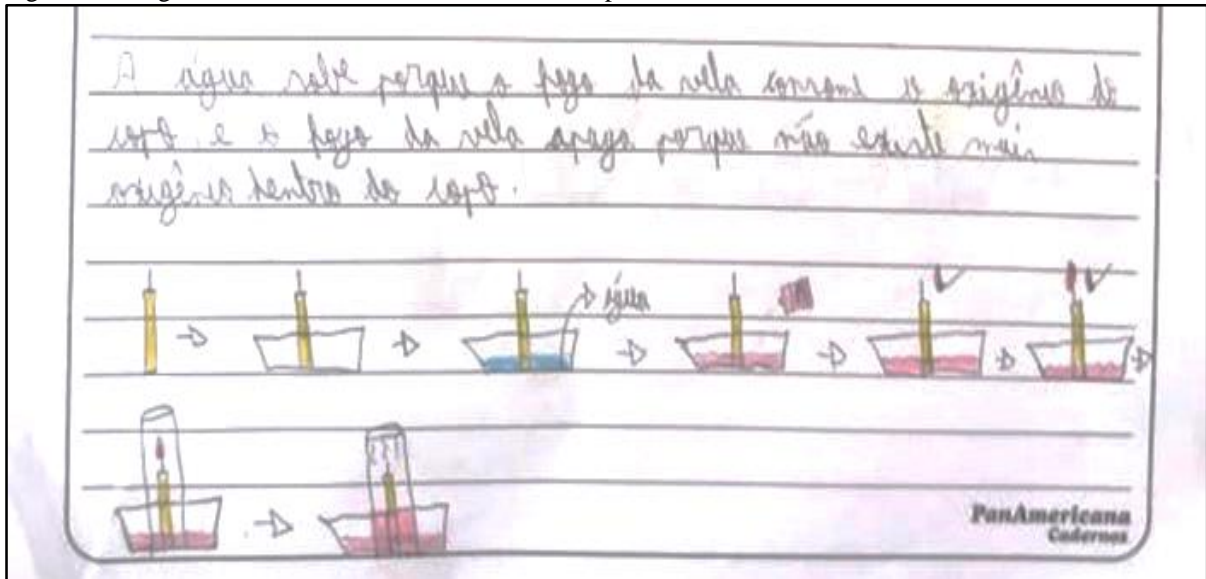 A água sobe porque o fogo da vela consome o oxigênio do
copo e o fogo da vela apaga porque não existe mais
oxigênio dentro do copo.
água
PanAmericana
Cadernos